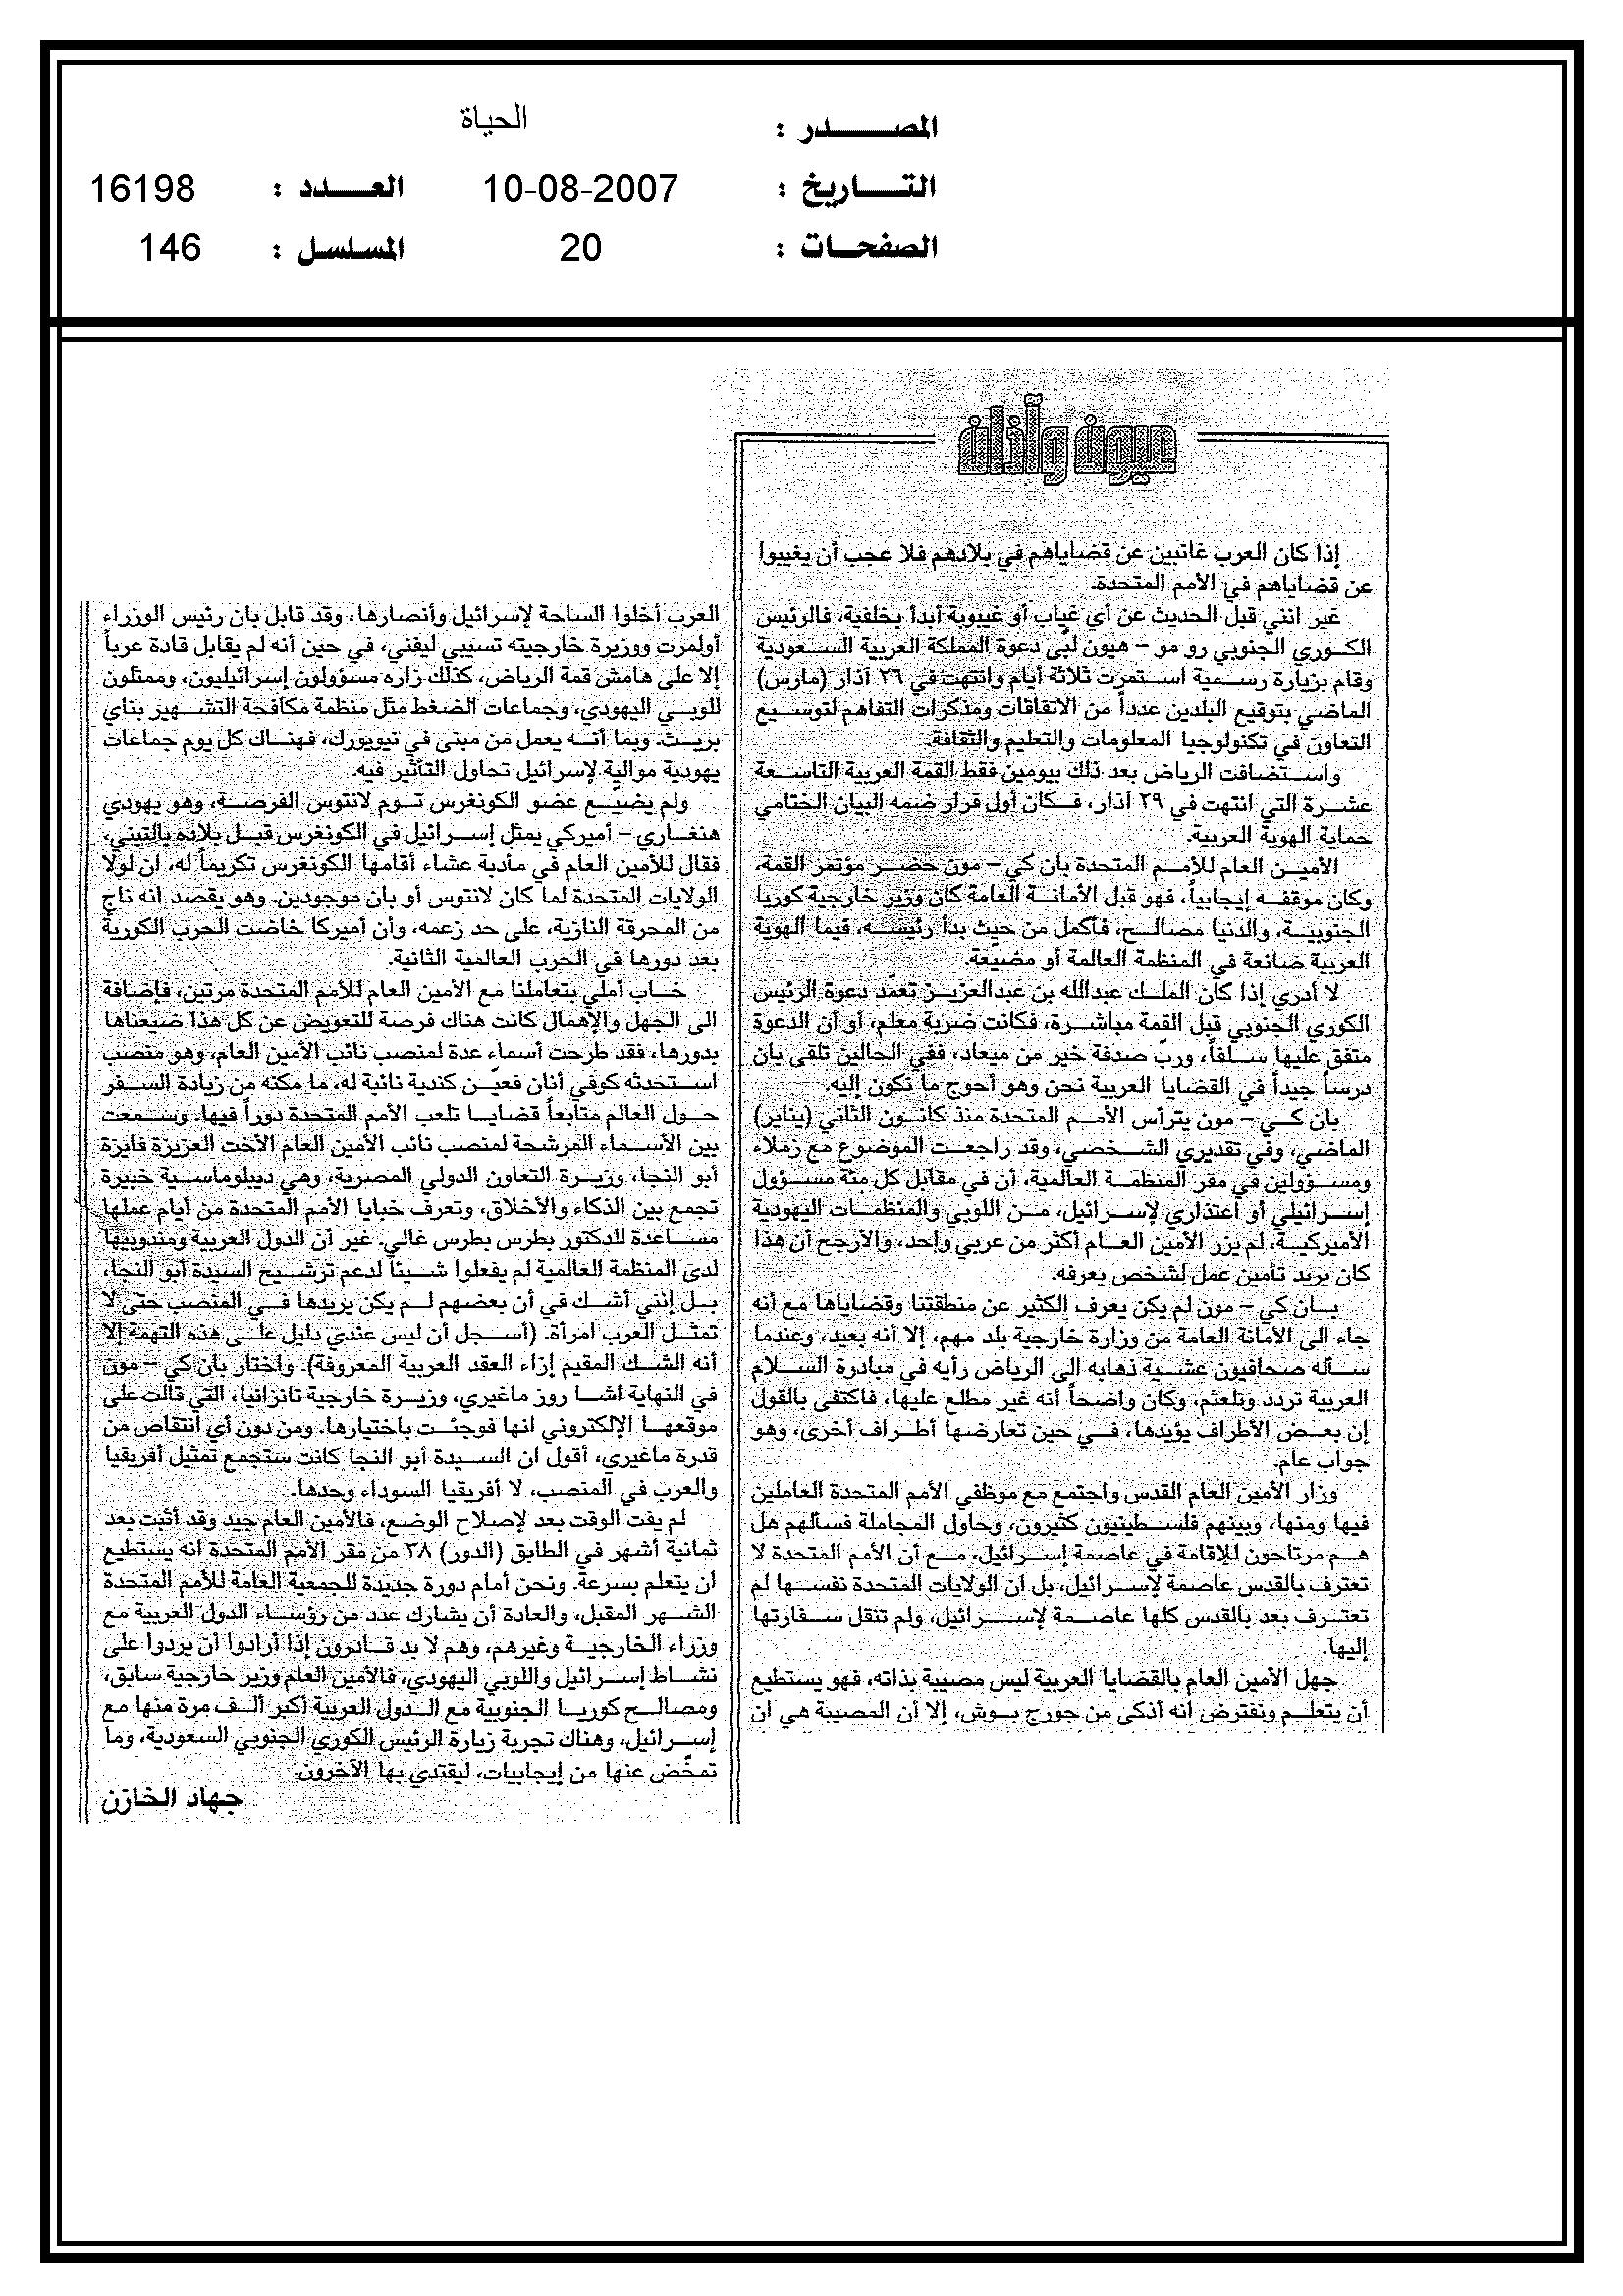 المصـــــدر : الحياة
التـــاريخ : 10-08-2007 العـــدد : 16198
الصفحـات : 20 المسلسل : 146
عيون وآذان
إذا كان العرب غائبين عن قضاياهم في بلادهم فلا عجب أن يغيبوا
عن قضاياهم في الأمم المتحدة.
غير انني قبل الحديث عن أي غياب أو غيبوبة أبدأ بخلفية، فالرئيس
الكوري الجنوبي رو مو – هيون لبّى دعوة المملكة العربية السعودية
وقام بزيارة رسمية استمرت ثلاثة أيام وانتهت في ٢٦ آذار (مارس)
الماضي بتوقيع البلدين عدداً من الاتفاقات ومذكرات التفاهم لتوسيع
التعاون في تكنولوجيا المعلومات والتعليم والثقافة.
واستضافت الرياض بعد ذلك بيومين فقط القمة العربية التاسعة
عشرة التي انتهت في ٢٩ آذار، فكان أول قرار ضمه البيان الختامي
حماية الهوية العربية.
الأمين العام للأمم المتحدة بان كي – مون حضر مؤتمر القمة،
وكان موقفه إيجابياً، فهو قبل الأمانة العامة كان وزير خارجية كوريا
الجنوبية، والدنيا مصالح، فأكمل من حيث بدأ رئيسه، فيما الهوية
العربية ضائعة في المنظمة العالمة أو مضيعة.
لا أدري إذا كان الملك عبدالله بن عبدالعزيز تعمّد دعوة الرئيس
الكوري الجنوبي قبل القمة مباشرة، فكانت ضربة معلم، أو أن الدعوة
متفق عليها سلفاً، وربّ صدفة خير من ميعاد، ففي الحالين تلقى بان
درساً جيداً في القضايا العربية نحن وهو أحوج ما نكون إليه.
بان كي – مون يترأس الأمم المتحدة منذ كانون الثاني (يناير)
الماضي، وفي تقديري الشخصي، وقد راجعت الموضوع مع زملاء
ومسؤولين في مقر المنظمة العالمية، أن في مقابل كل مئة مسؤول
إسرائيلي أو اعتذاري لإسرائيل، من اللوبي والمنظمات اليهودية
الأميركية، لم يزر الأمين العام أكثر من عربي واحد، والأرجح أن هذا
كان يريد تأمين عمل لشخص يعرفه.
بان كي – مون لم يكن يعرف الكثير عن منطقتنا وقضاياها مع أنه
جاء الى الأمانة العامة من وزارة خارجية بلد مهم، إلا أنه بعيد، وعندما
سأله صحافيون عشية ذهابه الى الرياض رأيه في مبادرة السلام
العربية تردد وتلعثم، وكان واضحاً أنه غير مطلع عليها، فاكتفى بالقول
إن بعض الأطراف يؤيدها، في حين تعارضها أطراف أخرى، وهو
جواب عام.
وزار الأمين العام القدس واجتمع مع موظفي الأمم المتحدة العاملين
فيها ومنها، وبينهم فلسطينيون كثيرون، وحاول المجاملة فسألهم هل
هم مرتاحون للإقامة في عاصمة إسرائيل، مع أن الأمم المتحدة لا
تعترف بالقدس عاصمة لإسرائيل، بل ان الولايات المتحدة نفسها لم
تعترف بعد بالقدس كلها عاصمة لإسرائيل، ولم تنقل سفارتها
إليها.
جهل الأمين العام بالقضايا العربية ليس مصيبة بذاته، فهو يستطيع
أن يتعلم ونفترض انه أذكى من جورج بوش، إلا أن المصيبة هي ان
العرب أخلوا الساحة لإسرائيل وأنصارها، وقد قابل بان رئيس الوزراء
أولمرت ووزيرة خارجيته تسيبي ليفني، في حين أنه لم يقابل قادة عرباً
إلا على هامش قمة الرياض، كذلك زاره مسؤولون إسرائيليون، وممثلون
للوبي اليهودي، وجماعات الضغط مثل منظمة مكافحة التشهير بناي
بريث. وبما أنه يعمل من مبنى في نيويورك، فهناك كل يوم جماعات
يهودية موالية لإسرائيل تحاول التأثير فيه.
ولم يضيع عضو الكونغرس توم لانتوس الفرصة، وهو يهودي
هنغاري – أميركي يمثل إسرائيل في الكونغرس قبل بلاده بالتبني،
فقال للأمين العام في مأدبة عشاء أقامها الكونغرس تكريماً له، ان لولا
الولايات المتحدة لما كان لانتوس أو بان موجودين. وهو يقصد انه ناجٍ
من المحرقة النازية، على حد زعمه، وأن أميركا خاضت الحرب الكورية
بعد دورها في الحرب العالمية الثانية.
خاب أملي بتعاملنا مع الأمين العام للأمم المتحدة مرتين، فإضافة
الى الجهل والإهمال كانت هناك فرصة للتعويض عن كل هذا ضيعناها
بدورها، فقد طرحت أسماء عدة لمنصب نائب الأمين العام، وهو منصب
استحدثه كوفي أنان فعيّن كندية نائبة له، ما مكنه من زيادة السفر
حول العالم متابعاً قضايا تلعب الأمم المتحدة دوراً فيها. وسمعت
بين الأسماء المرشحة لمنصب نائب الأمين العام الأخت العزيزة فايزة
أبو النجا، وزيرة التعاون الدولي المصرية، وهي ديبلوماسية خبيرة
تجمع بين الذكاء والأخلاق، وتعرف خبايا الأمم المتحدة من أيام عملها
مساعدة للدكتور بطرس بطرس غالي. غير أن الدول العربية ومندوبيها
لدى المنظمة العالمية لم يفعلوا شيئاً لدعم ترشيح السيدة أبو النجا،
بل إنني أشك في أن بعضهم لم يكن يريدها في المنصب حتى لا
تمثل العرب امرأة. (أسجل أن ليس عندي دليل على هذه التهمة إلا
أنه الشك المقيم إزاء العقد العربية المعروفة). واختار بان كي – مون
في النهاية اشا روز ماغيري، وزيرة خارجية تانزانيا، التي قالت على
موقعها الإلكتروني انها فوجئت باختيارها. ومن دون أي انتقاص من
قدرة ماغيري، أقول ان السيدة أبو النجا كانت ستجمع تمثيل أفريقيا
والعرب في المنصب، لا أفريقيا السوداء وحدها.
لم يفت الوقت بعد لإصلاح الوضع، فالأمين العام جيد وقد أثبت بعد
ثمانية أشهر في الطابق (الدور) ٣٨ من مقر الأمم المتحدة انه يستطيع
ان يتعلم بسرعة. ونحن أمام دورة جديدة للجمعية العامة للأمم المتحدة
الشهر المقبل، والعادة أن يشارك عدد من رؤساء الدول العربية مع
وزراء الخارجية وغيرهم، وهم لا بد قادرون إذا أرادوا أن يردوا على
نشاط إسرائيل واللوبي اليهودي، فالأمين العام وزير خارجية سابق،
ومصالح كوريا الجنوبية مع الدول العربية أكبر ألف مرة منها مع
إسرائيل، وهناك تجربة زيارة الرئيس الكوري الجنوبي السعودية، وما
تمخّض عنها من إيجابيات، ليقتدي بها الآخرون.
جهاد الخازن